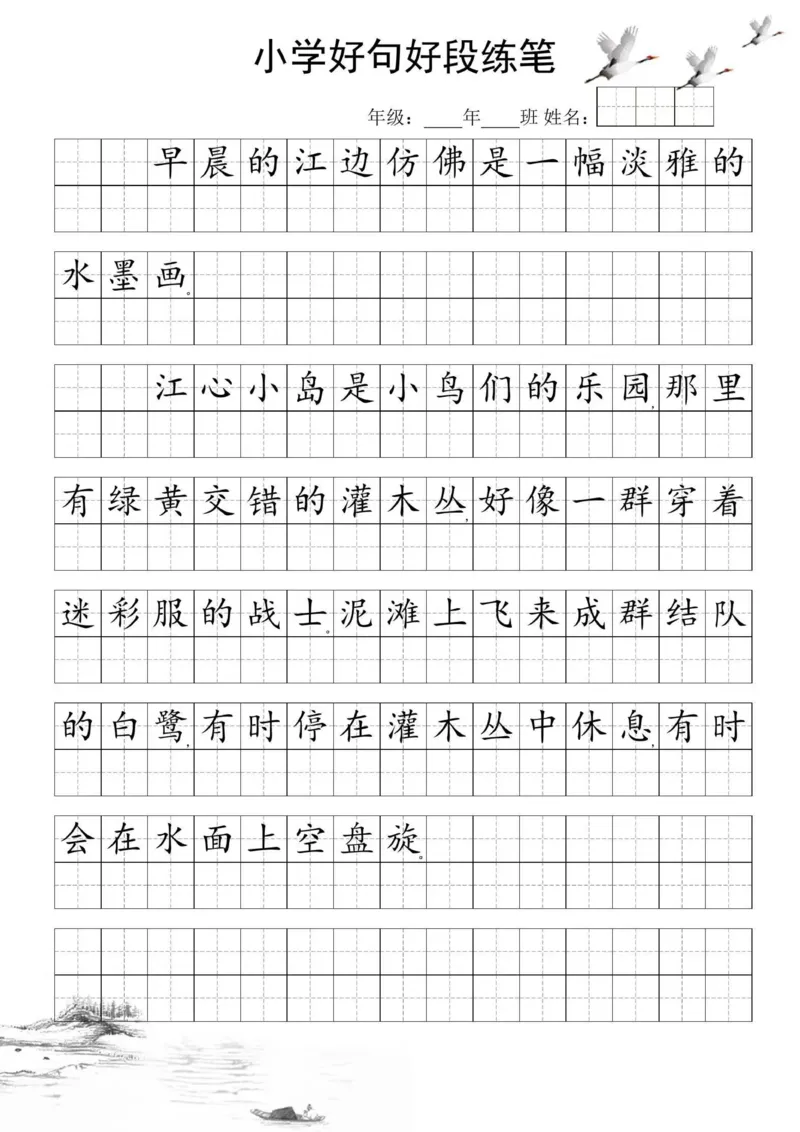 小学好句好段练笔
年级：____年____班 姓名：
早晨的江边仿佛是一幅淡雅的
水墨画。
江心小岛是小鸟们的乐园,那里
有绿黄交错的灌木丛,好像一群穿着
迷彩服的战士。泥滩上飞来成群结队
的白鹭,有时停在灌木丛中休息,有时
会在水面上空盘旋。